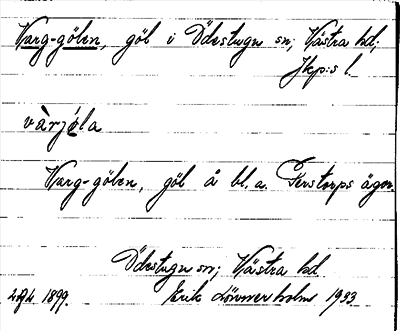 Varg-gölen, göl i Ödestugu sn; Västra hd;
Jkp:s l.
vàrjǿla
Varg-gölen, göl å bl.a. Ferstorps ägor.
Ödestugu sn; Västra hd
1899. Erik Lönnerholm 1933